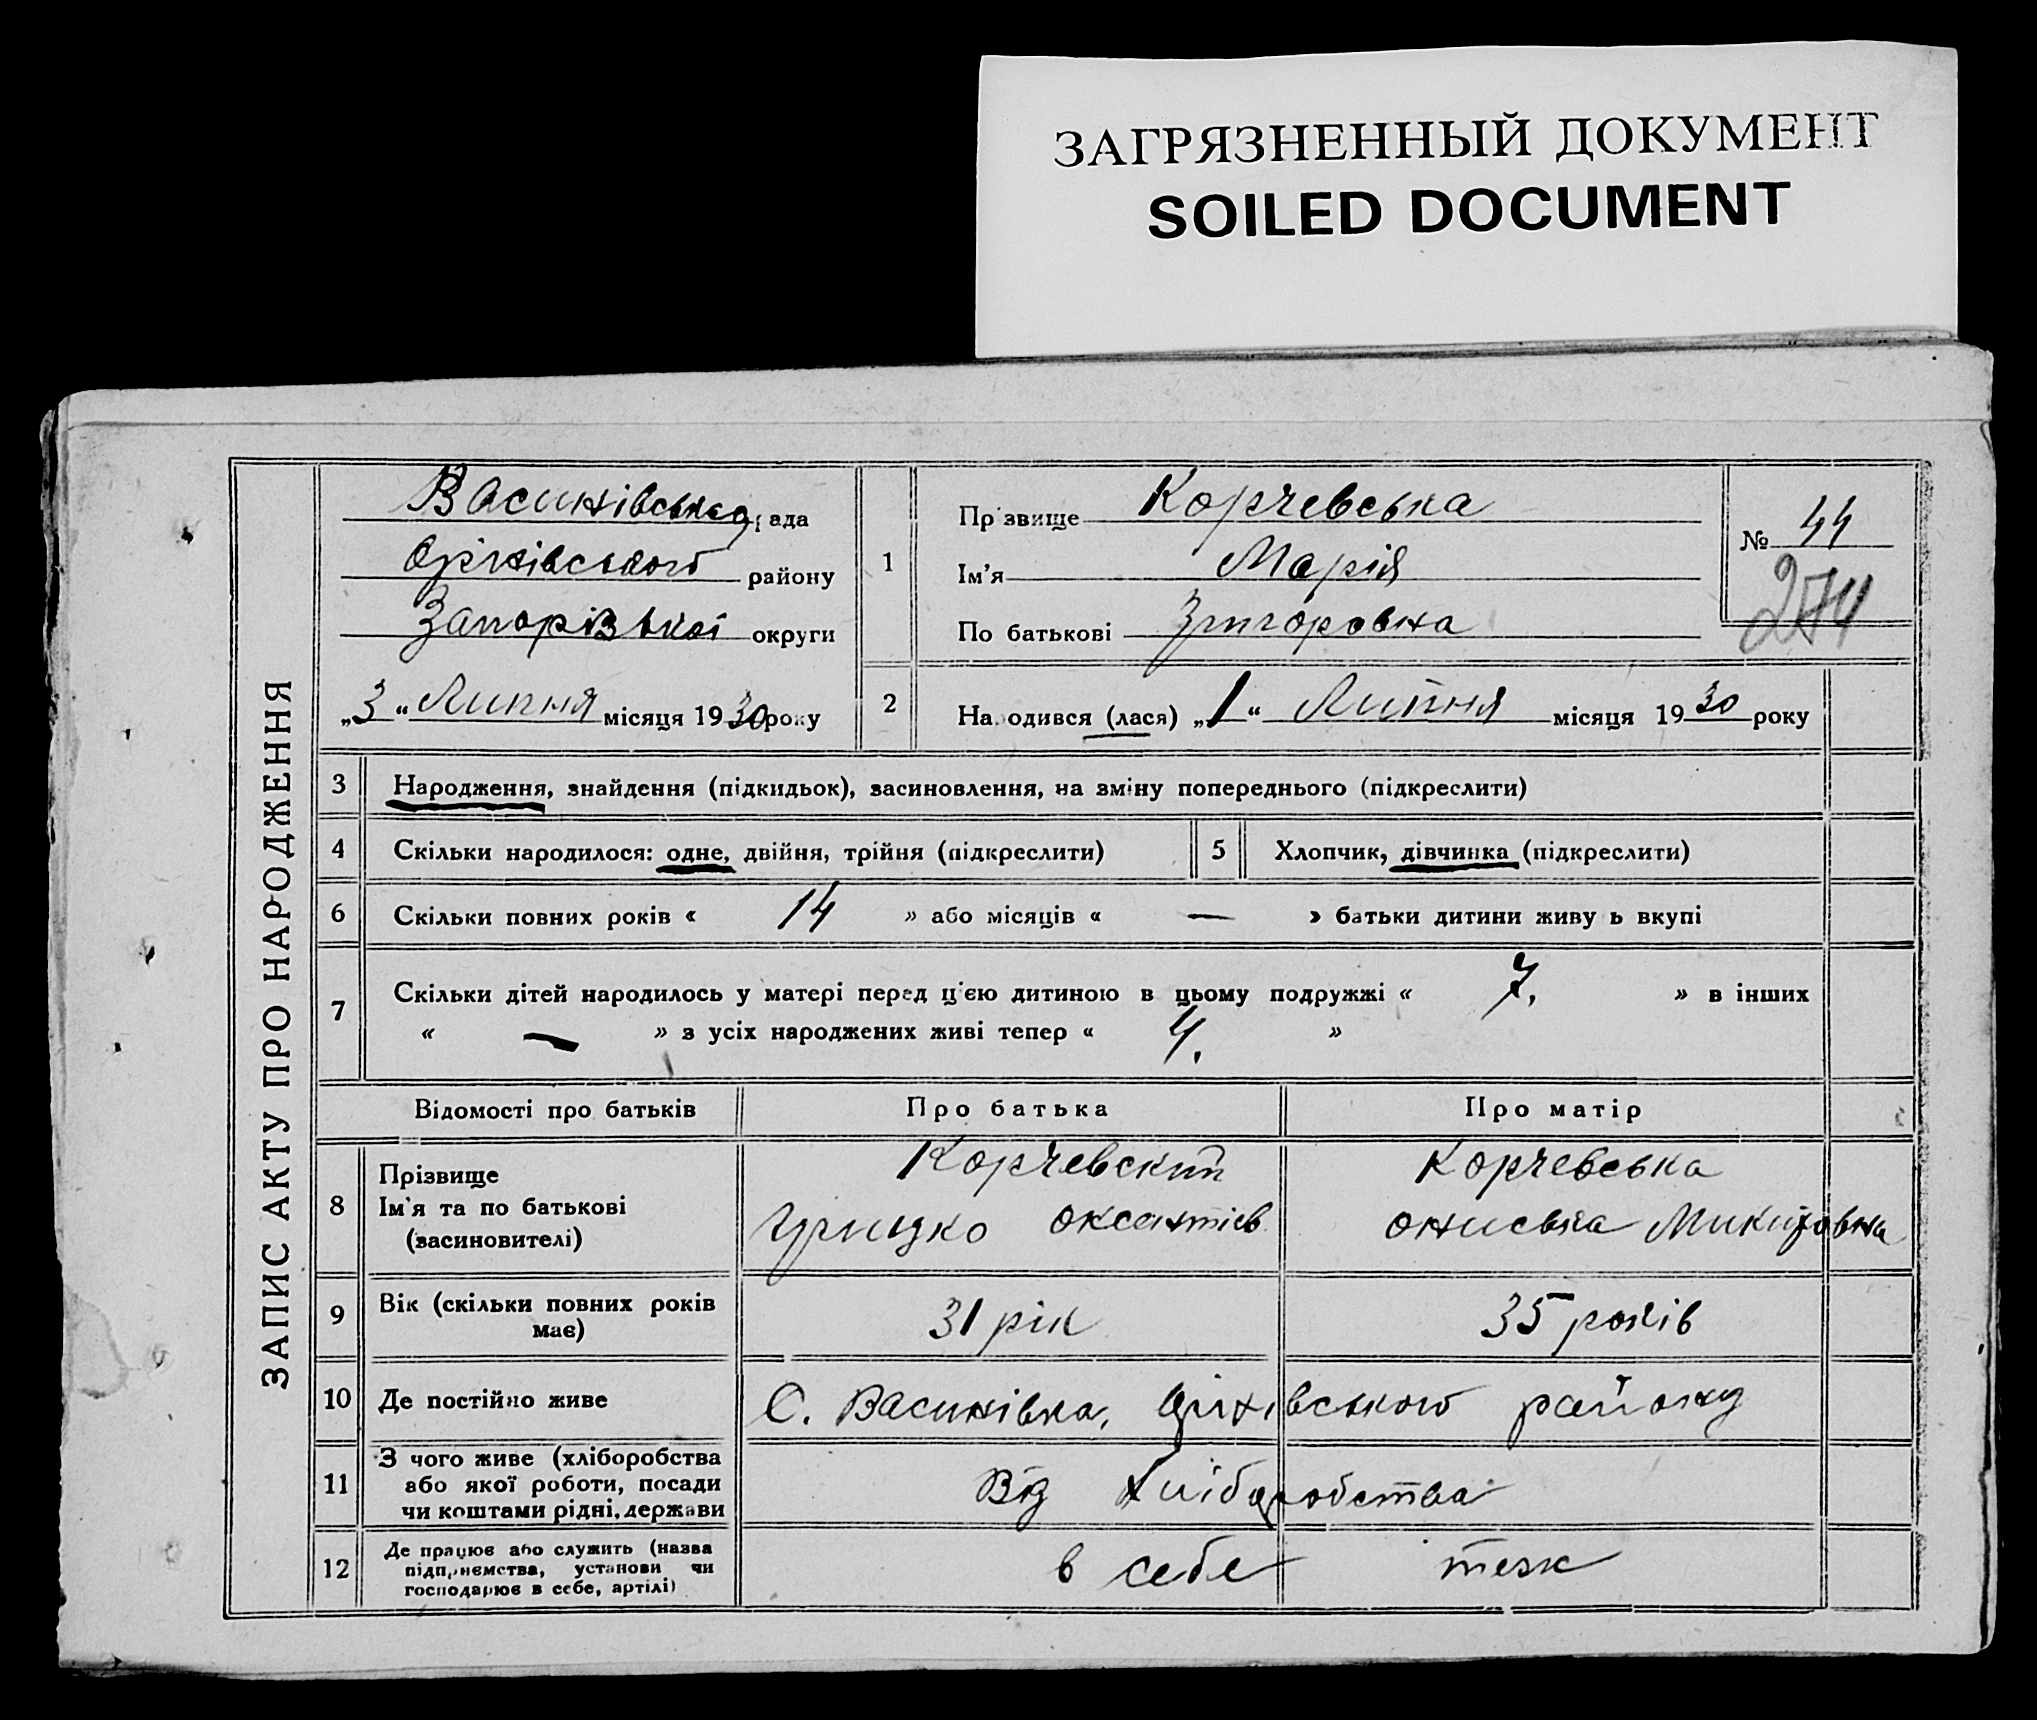 ЗАГРЯЗНЕННЫЙ ДОКУМЕНТ
SOILED DOCUMENT
ЗАПИС АКТУ ПРО НАРОДЖЕННЯ
Василівська рада
Оріхівського району
Запорізької округи
„3“ Липня місяця 1930 року
1
Прізвище Корчевська
Ім'я Марія
По батькові Григоровна
№ 44
274
2
Народився (лася) „1“ Липня місяця 1930 року
3 Народження, знайдення (підкидьок), засиновлення, на зміну попереднього (підкреслити)
4 Скільки народилося: одне, двійня, трійня (підкреслити)
5 Хлопчик, дівчинка (підкреслити)
6 Скільки повних років « 14 » або місяців « — » батьки дитини живуть вкупі
7 Скільки дітей народилось у матері перед цією дитиною в цьому подружжі « 7. » в інших
« — » з усіх народжених живі тепер « 4. »
Відомості про батьків Про батька Про матір
8 Прізвище
Ім'я та по батькові
(засиновителі)
Корчевский
Грицко
Корчевська
Ониська Микитовна
9 Вік (скільки повних років
має)
31 рік 35 років
10 Де постійно живе С. Василівка, Оріхівського району
11 З чого живе (хліборобства
або якої роботи, посади
чи коштами рідні, держави
Від Хліборобства
12 Де працює або служить (назва
підприємства, установи чи
господарює в себе, артілі)
в себе теж